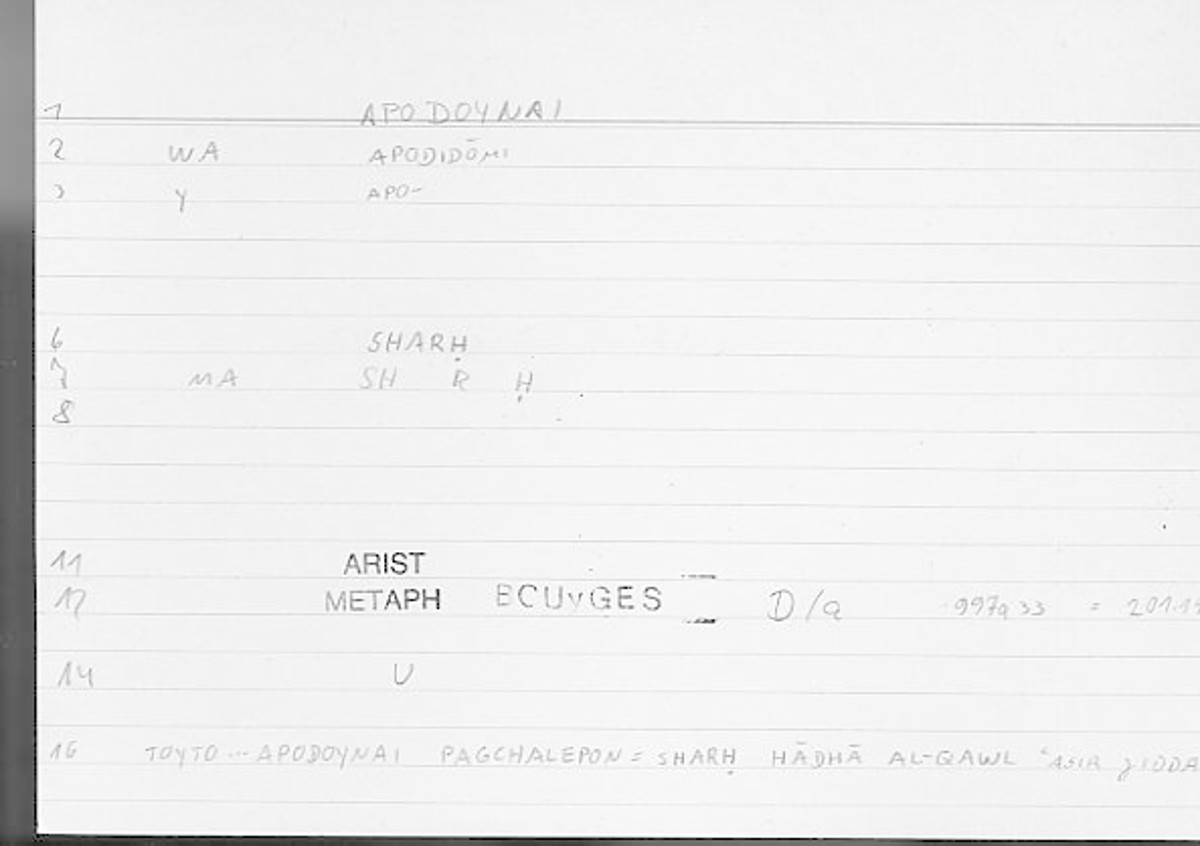 1 APODOYNAI
2 WA APODIDŌMI
3 Y APO-
6 SHARḤ
7 MA SH R Ḥ
8
11 ARIST
12 METAPH BCUVGES D/a 997a33 = 201.15
14 U
16 TOYTO ... APODOYNAI PAGCHALEPON = SHARḤ HĀDHĀ AL-QAWL ʿASIR JIDDA